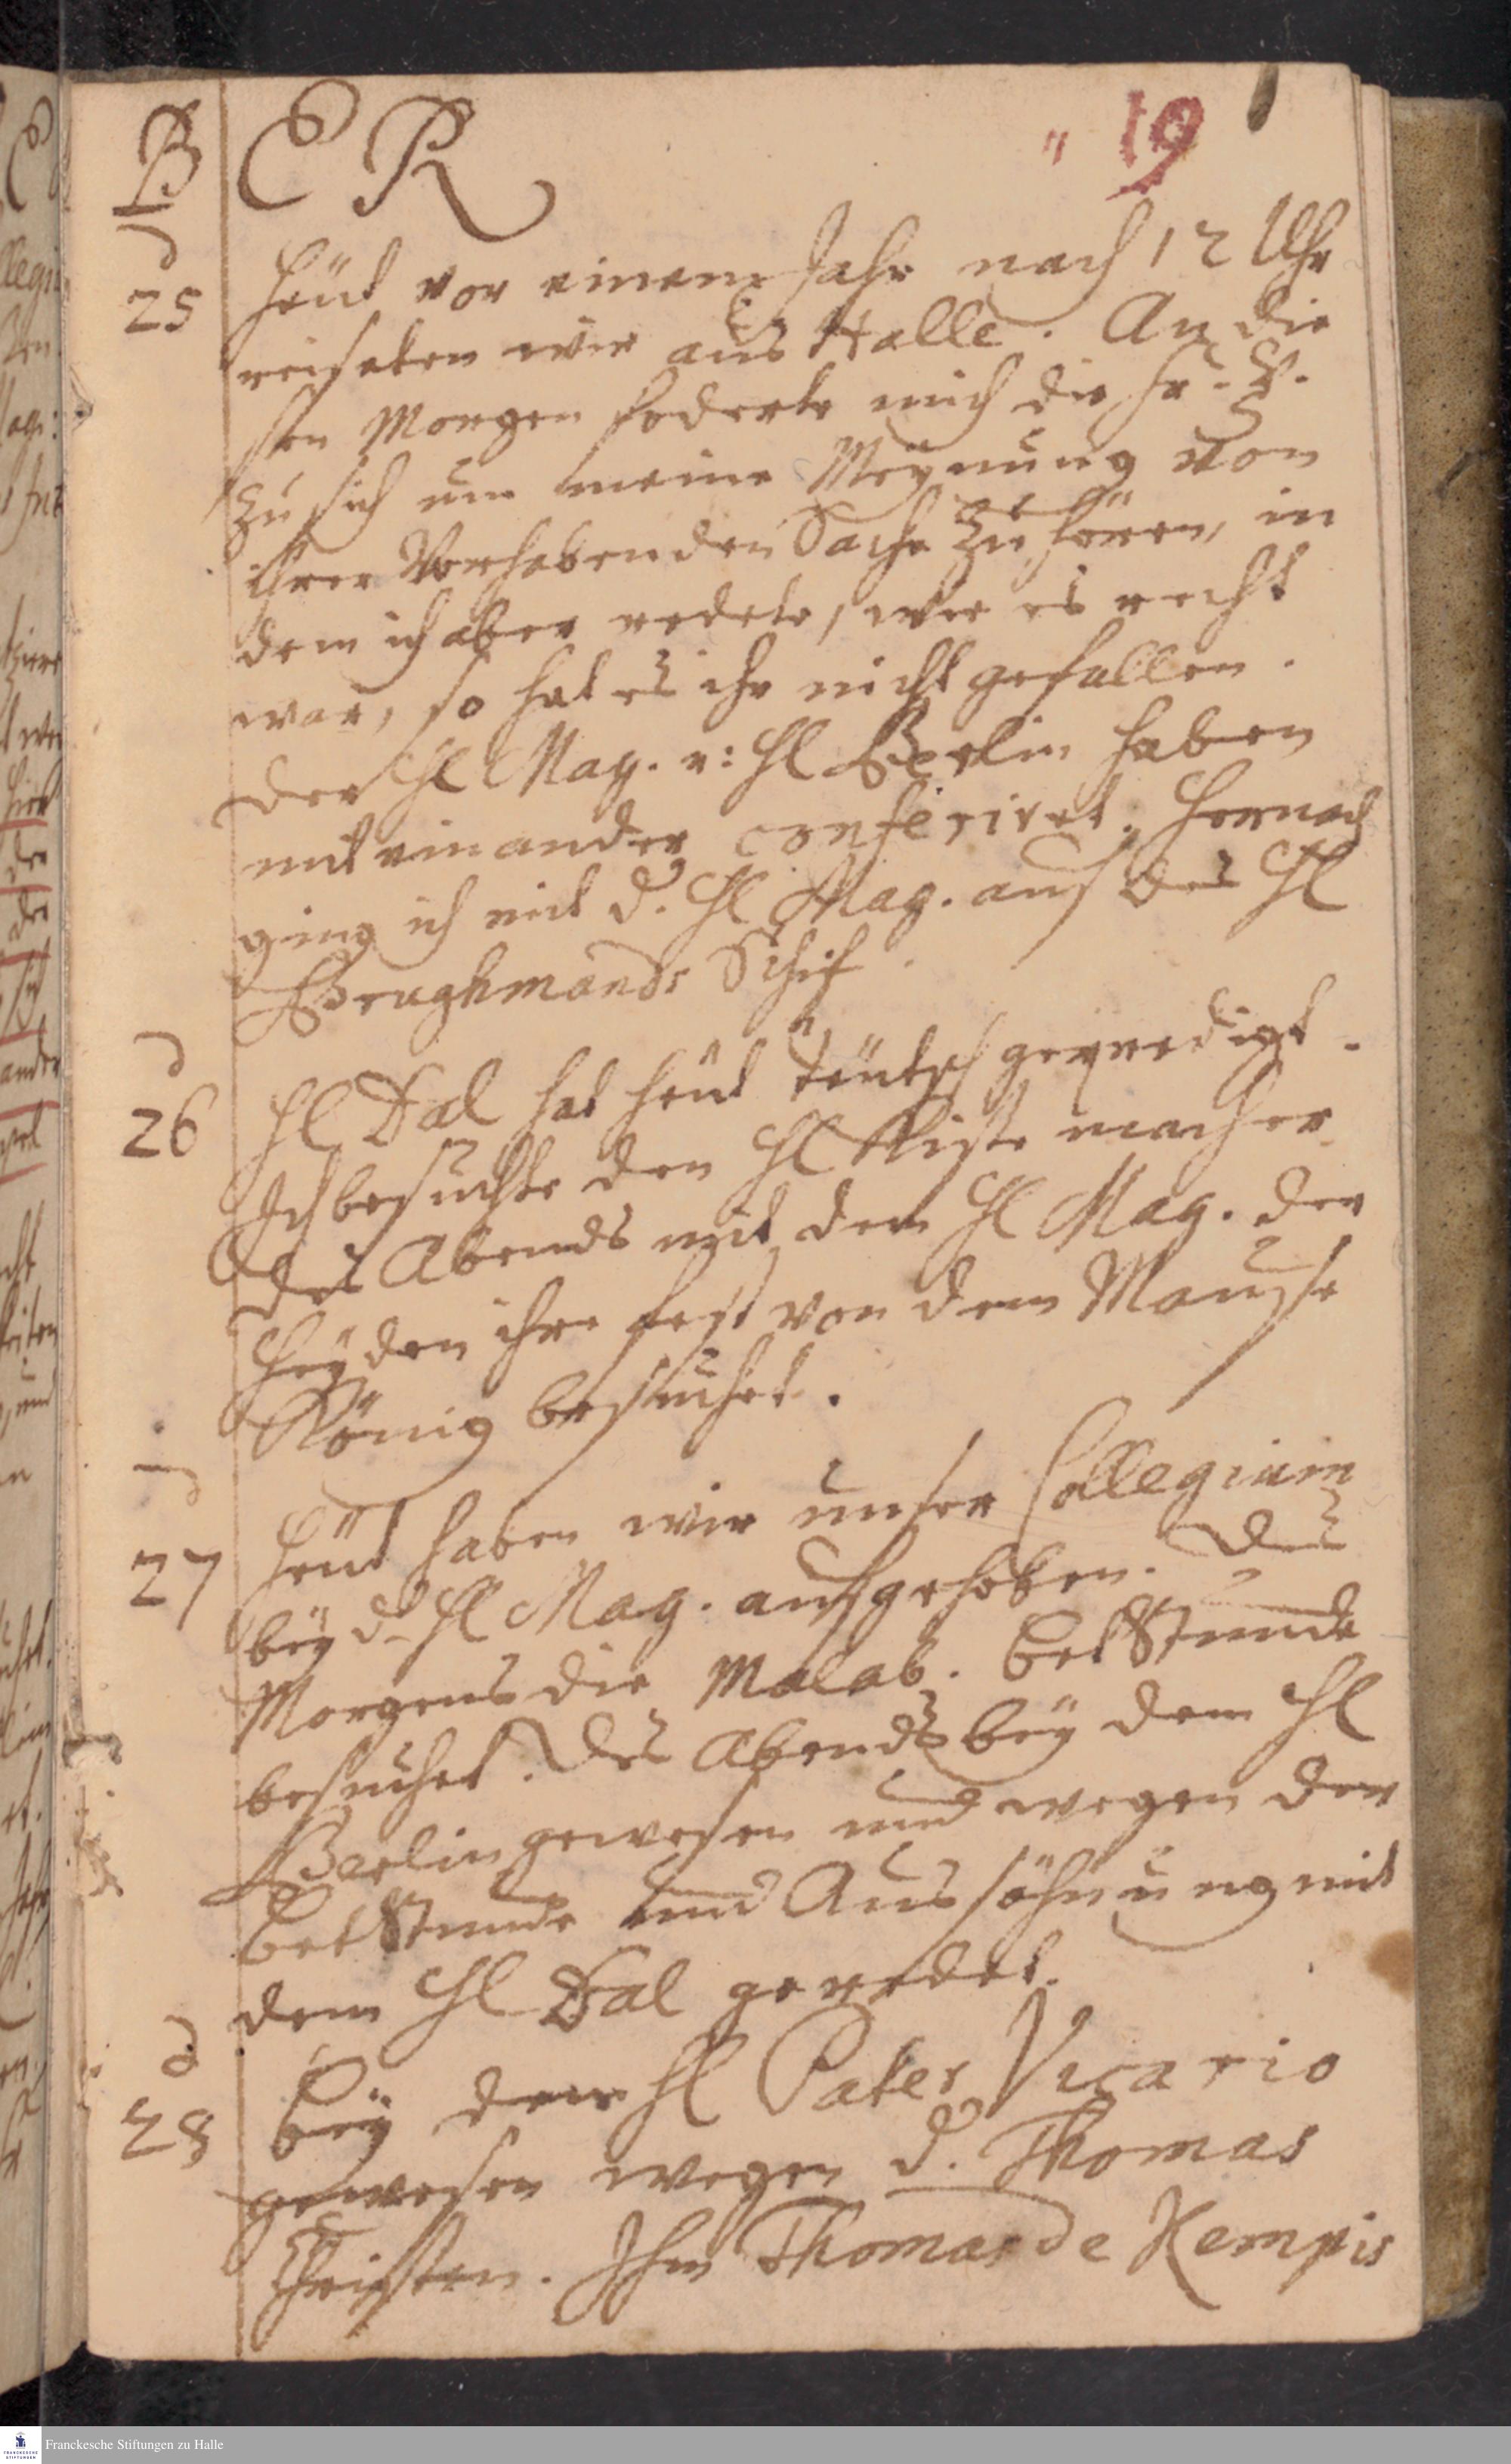 B E R " 19
25 Heüt vor einem Jahr nach 12 Uhr
reiseten wir aus Halle. An die
sem Morgen foderte mich die Fr. V.
zu sich um meine Meÿnung von
ihrer Vorhabenden Sache zu hören, in
dem ich aber redete, wie es recht
war, so hat es ihr nicht gefallen.
Der Hl Mag. u: Hl Berlin haben
mit einander conferiret. Hernach
ging ich mit d. Hl Mag. auf des Hl
Brughmands Schif.
26 Hl Dal hat heüt teütsch geprediget.
Ich besuchte den Hl Kistemacher
Des Abends mit dem Hl Mag. der
Heÿden ihr fest von dem Mause
König besuchet.
27 Heüt haben wir unser Collegium
beÿ d. Hl Mag. aufgehoben. Des
Morgens die Malab. BetStunde
besuchet. Des Abends beÿ dem Hl
Berlin gewesen und wegen der
BetStunde und Aussöhnung mit
dem Hl Dal geredet.
28 Beÿ dem Hl Pater Vicario
gewesen wegen d. Thomas
Christen. Ihm Thomas de Kempis
Franckesche Stiftungen zu Halle